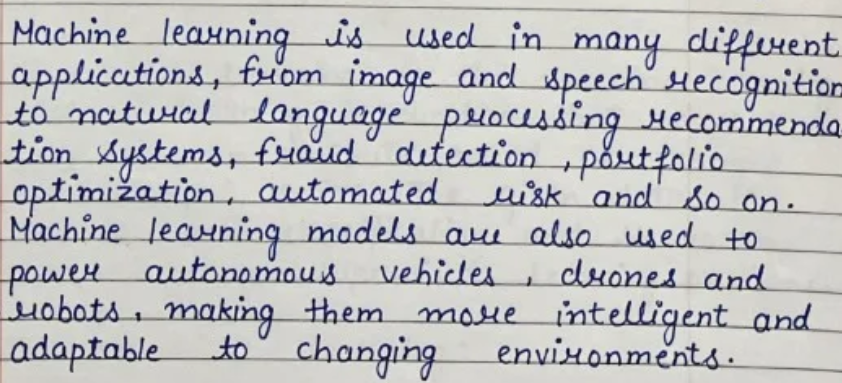 Machine learning is used in many different
applications, from image and speech recognition
to natural language processing recommenda
tion systems, fraud detection , portfolio
optimization, automated risk and so on.
Machine learning models are also used to
power autonomous vehicles , drones and
robots, making them more intelligent and
adaptable to changing environments.